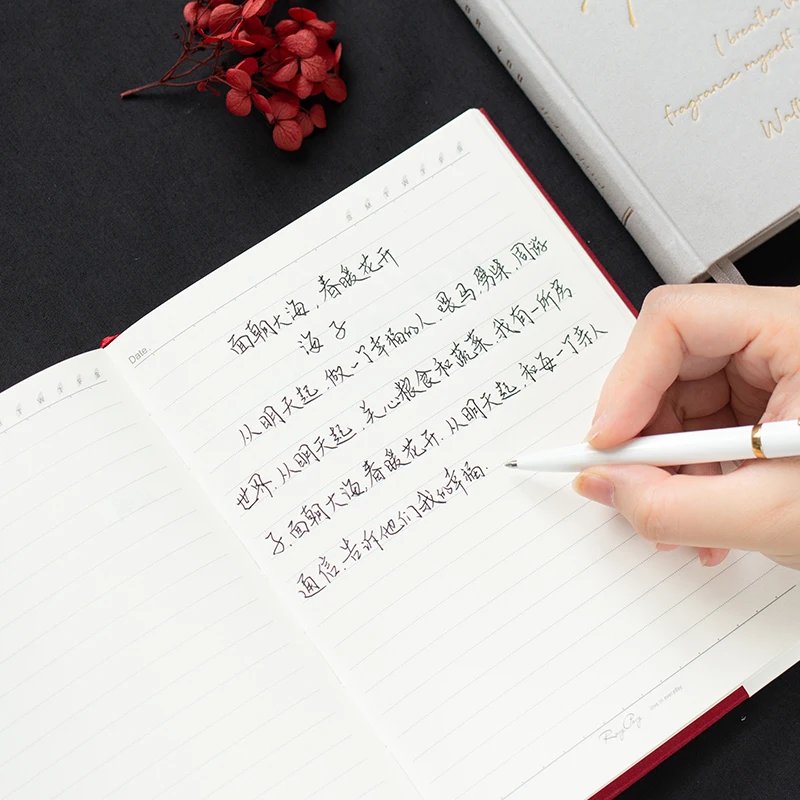 面朝大海，春暖花开
海子
从明天起，做一个幸福的人．喂马，劈柴，周游
世界．从明天起，关心粮食和蔬菜．我有一所房
子．面朝大海，春暖花开．从明天起，和每一个亲人
通信，告诉他们我的幸福．
Date
I breathe the
fragrance myself
Walt
OR YOU